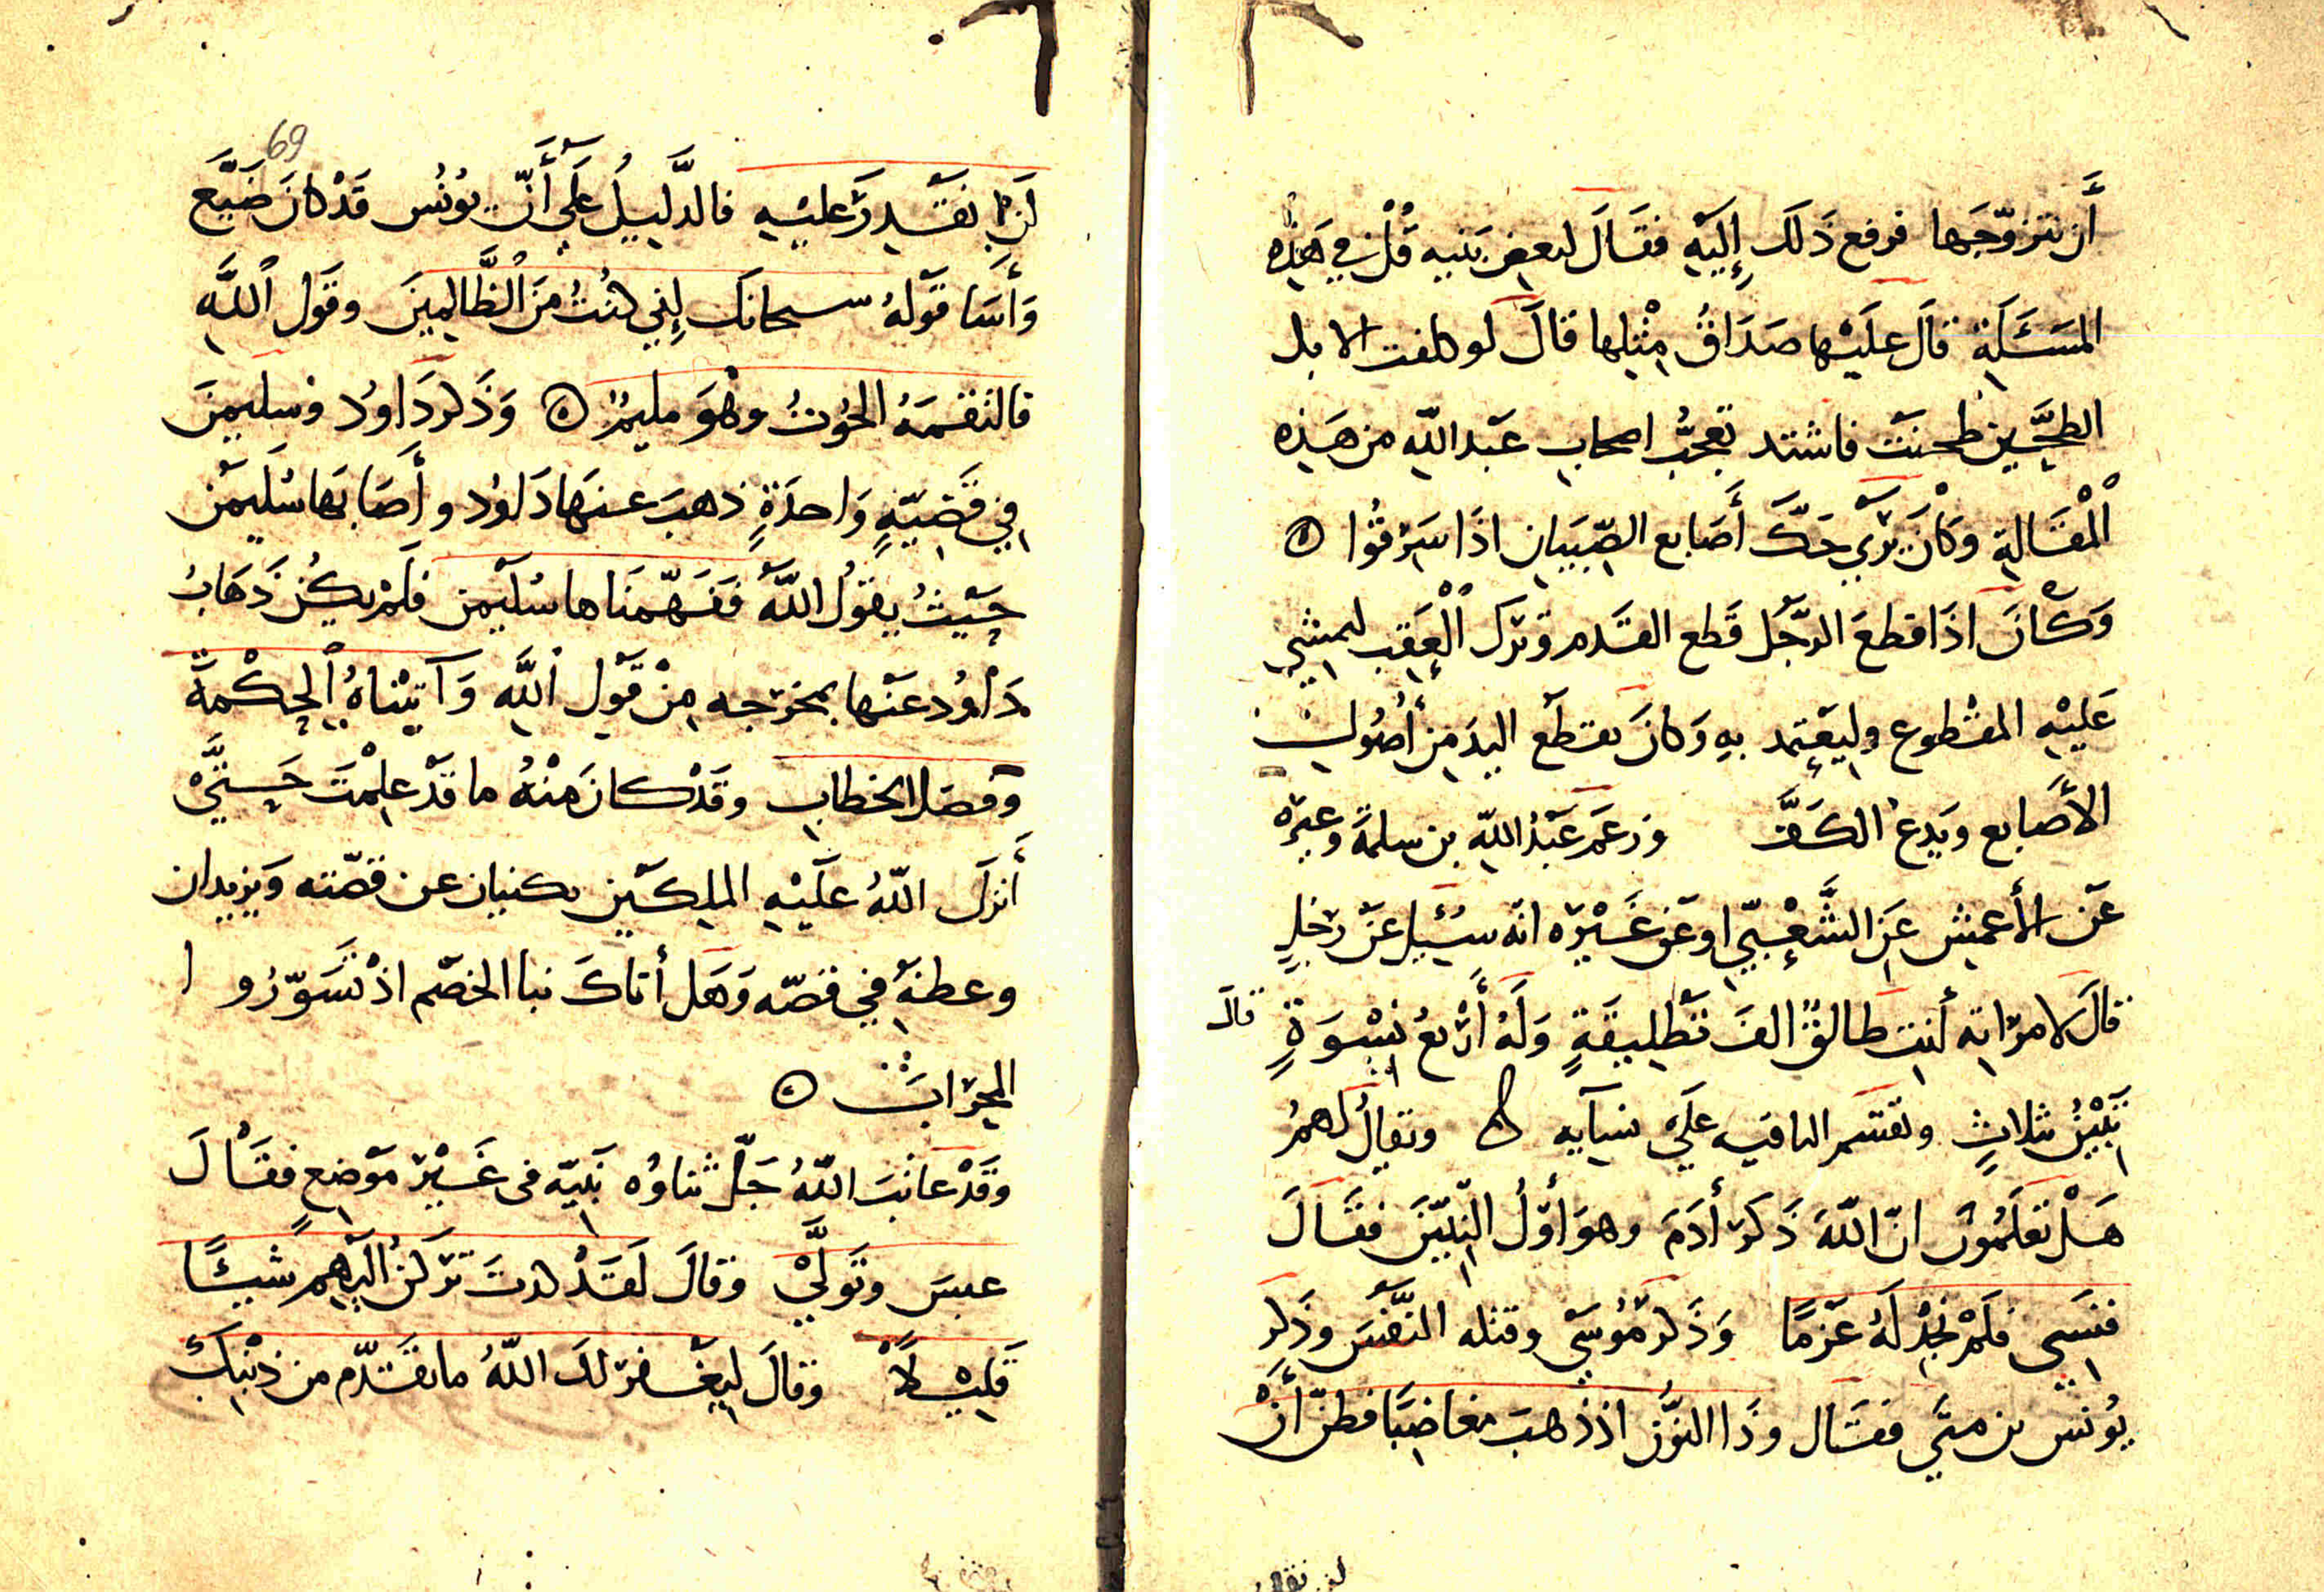 أن يتزوّجَها فرفع ذَلكَ إِلَيْهِ فقَالَ لبعض بَنيهِ قُلْ في هَذِهِ
المَسْئَلَةِ قالَ عليْها صَدَاقُ مِثْلِها قالَ لو كلفت الابل
الطحين طحنَتْ فاشتد تعجُّبُ اصحابِ عَبْد اللّهِ من هَذِهِ
اْلمْقَالةِ وكانَ يَرْي حَكَّ أَصَابع الصِّبيَانِ اذَا سَرَقُوا ۞
وَكْانَ اذَا قطعَ الرَّجُل قَطع القَدَم وَتَرَكَ اْلعَقِبَ ليمشِيَ
عَليْهِ المقْطوع وليَعْتَمِد بهِ وَكانَ يقطَع اليدَ مِن أُصُولِ
الأَصَابع وَيَدعُ الكَفَّ وزعَم عَبْدُ اللّهِ بن سلمةَ وغيرُه
عَن الأَعمشِ عَن الشَّعْبيِّ اوعَنْ غَيْرِه انّه سُئِيلَ عَنْ رَجُلٍ
قالَ لامراتِهِ أنتِ طالقٌ الفَ تَطْلِيقَةٍ وَلَهُ أَرْبعُ نِسْوَةٍ قالَ
تَبِيْنُ بثلاثٍ وتقسم الباقيه عَلَي نسآيه ويُقالُ لهمْ
هَلْ تعْلَمُونَ انّ اللّهَ ذَكَرَ أدَمَ وهوَ أوّلُ النبِيّيَن فقَالَ
فنَسِيَ فلَمْ نَجِدْ لَهُ عَزْمًا وَذَكَر مُوْسَي وقتله النَّفْسَ وذكر
يُونس بن متَّي فقَال وذَا النوُّن اذ ذهبَ مغاضِبًا فظنّ أَنْ
69
لَنْ نقْدِرَ عليْهِ فالدَّليلُ عَلَي أَنّ يوُنُس قدْ كانَ ضَيَّع
وَأسَا قوْلهُ سبحانكَ إِني كنْتُ مِنَ اْلظَّالِمِينَ وقَول اْللَّهِ
فالتقمَهُ الحُوتُ وهُوَ مليمٌ ۞ وَذَكر دَاودُ وسُليمنَ
في قَضِيّةٍ وَاحدَةٍ ذهبَ عنهَا دَاوُد وأَصَابَهَا سُلَيْمَن
حَيْثُ يقوُل اللّهُ ففَهّمنَاها سُليْمن فلَمْ يكُنْ ذَهَابُ
دَاْوُد عَنْها بمخرَجه مِنْ قَوْلِ اْللَّهِ وَآتيْناهُ اْلحِكْمةَ
وفصل الخطابِ وقدْ كانَ مِنْهُ ما قَدْ علِمْتَ حَتَّيْ
أَنزَلَ اللّهُ عليْهِ الملكيْنِ يكنيان عن قصّته وَيزيدان
وعظهُ في قصّه وَهَل أتاكَ نبا الخصْم اذْ تسَوّرُو ا
المِحْرَابَ ۞
وقَدْ عاتَبَ اللّهُ جَلّ ثناوُه نَبيّه فى غَيْرِ مَوْضعٍ فقَاْلَ
عبسَ وتَوَلَّيْ وقالَ لقَدْ كدتَ تَرْكَنُ الَيْهِمْ شَيْئًا
قَليْلًا وقالَ ليَغْفرَ لكَ اللّهُ ما تقَدّم مِن ذنْبِكَ